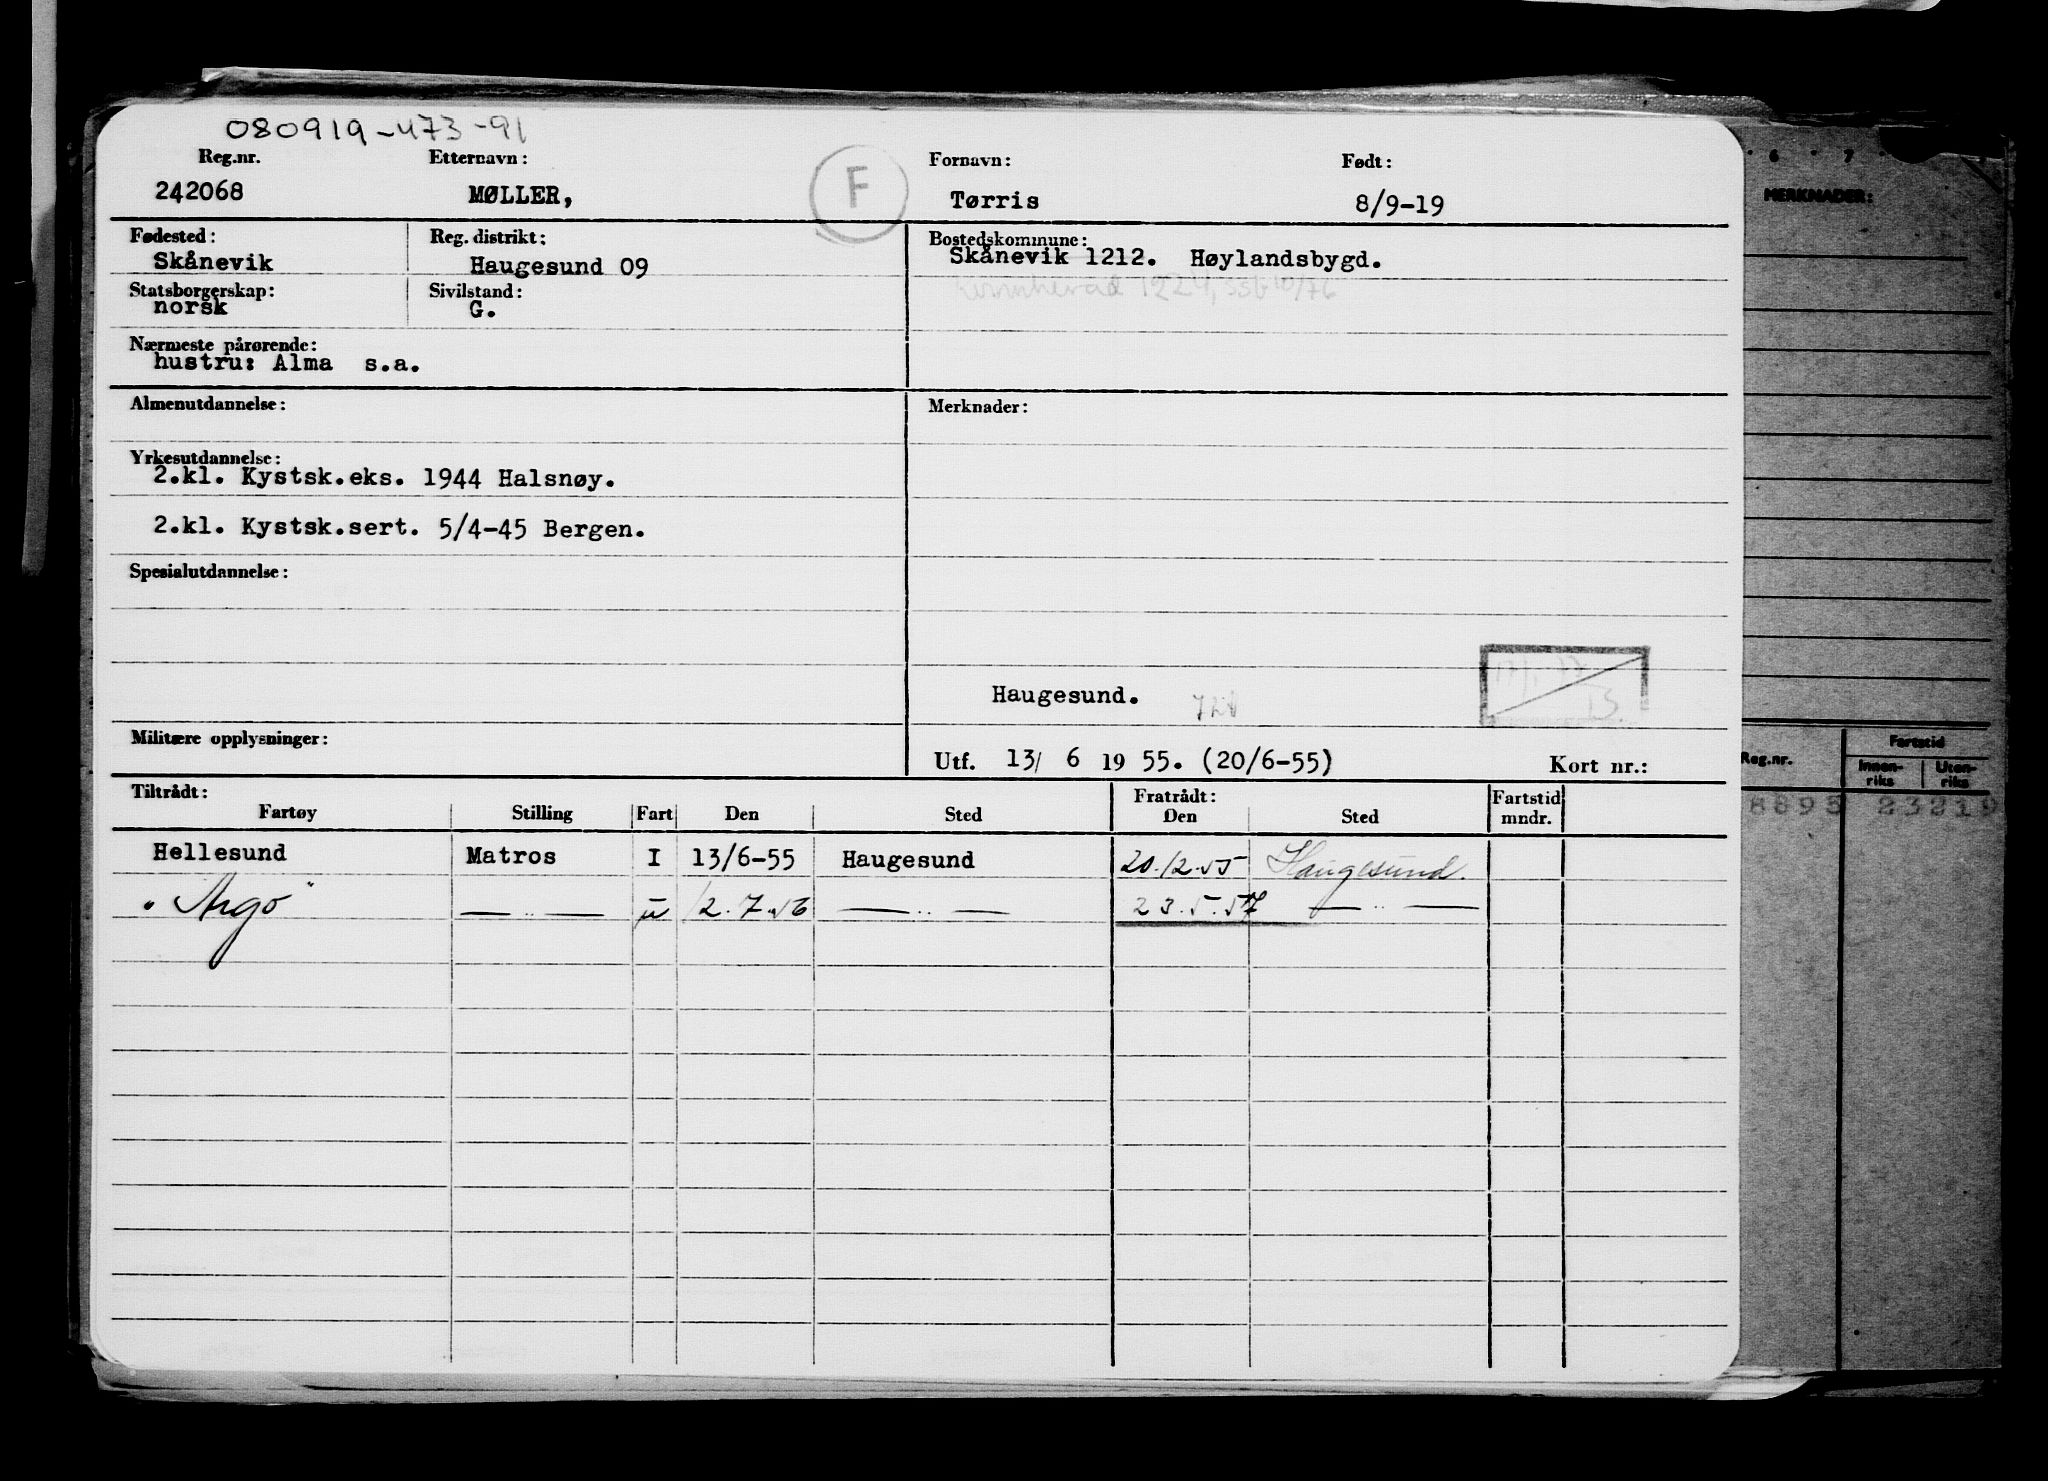 080919-473-91
Reg.nr. Etternavn: F Fornavn: Født:
242068 MØLLER, Tørris 8/9-19
Fødested: Reg. distrikt: Bostedskommune:
Skånevik Haugesund 09 Skånevik 1212. Høylandsbygd.
Statsborgerskap: Sivilstand: Kvinnherad 1224, SSB 10/76
norsk G.
Nærmeste pårørende:
hustru: Alma s.a.
Almenutdannelse: Merknader:
Yrkesutdannelse:
2.kl. Kystsk.eks. 1944 Halsnøy.
2.kl. Kystsk.sert. 5/4-45 Bergen.
Spesialutdannelse:
Haugesund.
Militære opplysninger:
Utf. 13/ 6 1955. (20/6-55) Kort nr.:
Tiltrådt: Fratrådt: Fartstid
Fartøy Stilling Fart Den Sted Den Sted mndr.
Hellesund Matros I 13/6-55 Haugesund 20.12.55 Haugesund.
"Argo" — " — u 12.7.56 — " — 23.5.57 — " —
6 7
MERKNADER:
Reg.nr. Fartstid
Innen-riks Uten-riks
8895 23219